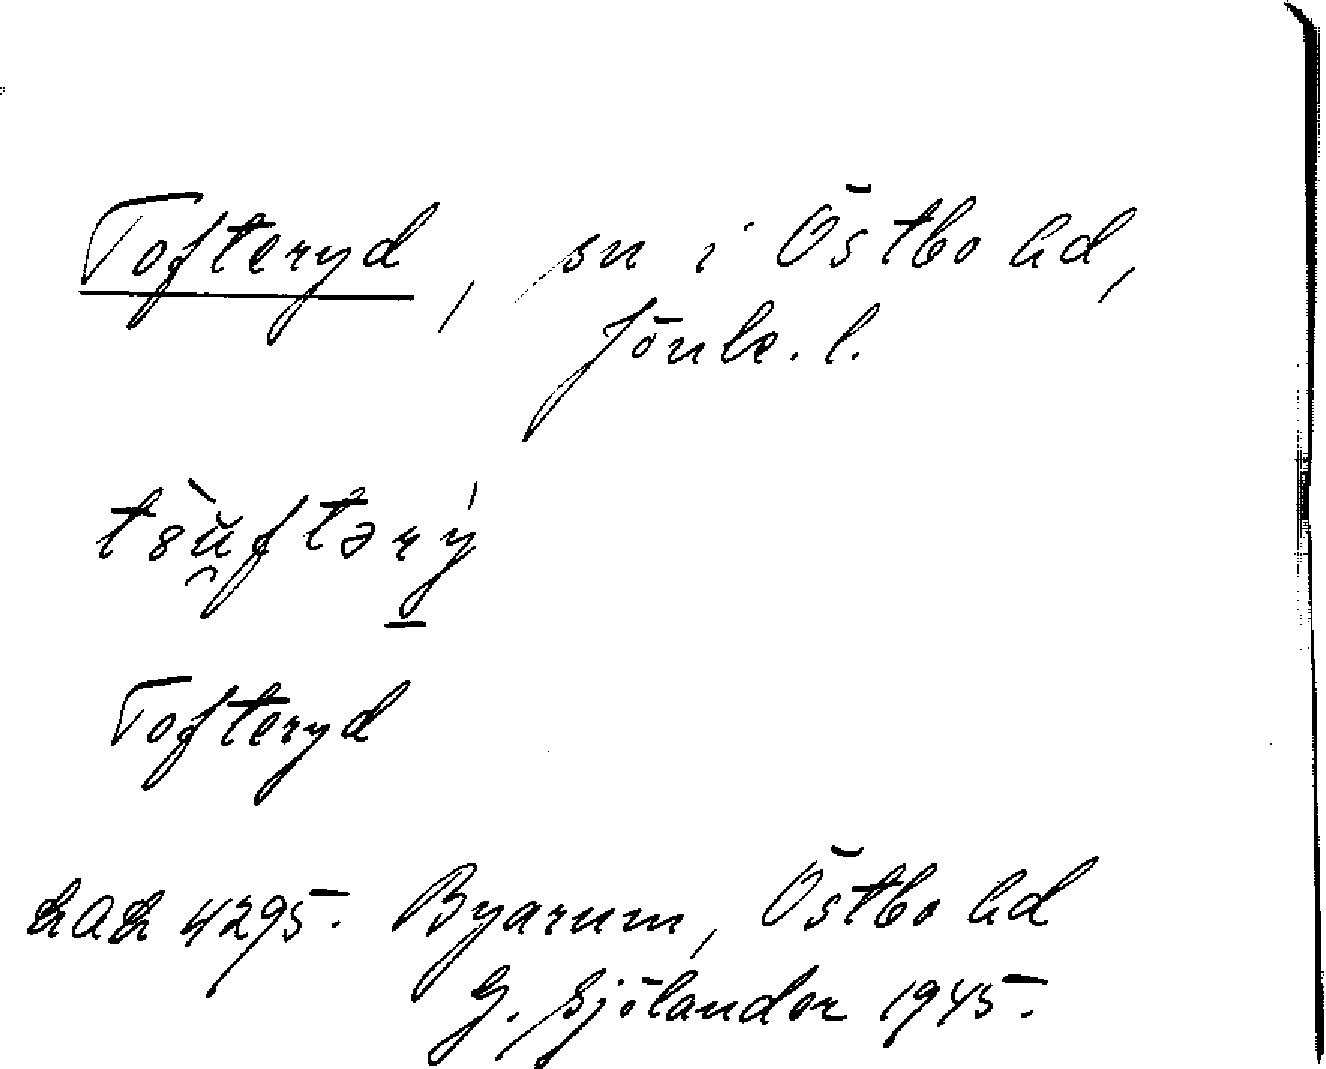 Tofteryd, sn i Östbo hd,
Jönk. l.
Tofteryd
4295. Byarum, Östbo hd
G. Sjölander 1945.